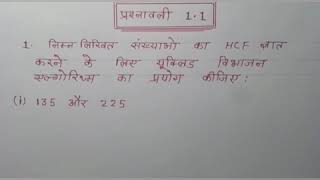 प्रश्नावली 1.1
1. निम्न लिखित संख्याओ का HCF ज्ञात
करने के लिए यूक्लिड विभाजन
एल्गोरिथ्म का प्रयोग कीजिए:
(i) 135 और 225